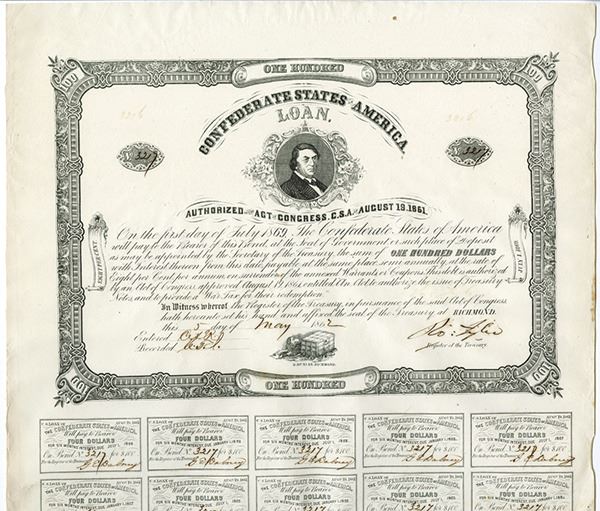 ONE HUNDRED
100
100
CONFEDERATE STATES OF AMERICA
LOAN.
3216
3216
No. 3217
No. 3217
AUTHORIZED BY ACT OF CONGRESS, C.S.A. OF AUGUST 19. 1861.
On the first day of July 1869, The Confederate States of America
will pay to the Bearer of this Bond, at the Seal of Government, or such place of Deposit
as may be appointed by the Secretary of the Treasury, the sum of ONE HUNDRED DOLLARS
with Interest thereon from this date, payable at the same place semi annually, at the rate of
Eight per Cent per annum, on surrender of the annexed Warrants or Coupons. This debt is authorized
by an Act of Congress approved August 19, 1861, entitled An Act to authorize the issue of Treasury
Notes and to provide a War Tax for their redemption.
In Witness whereof, the Register of the Treasury, in pursuance of the said Act of Congress
hath hereunto set his hand and affixed the seal of the Treasury at RICHMOND.
this 5 day of May 1862
EIGHT PER CENT
JULY 1. 1869
Entered
Recorded
Register of the Treasury.
100
100
ONE HUNDRED
CONFEDERATE STATES OF AMERICA,
Will pay to Bearer
FOUR DOLLARS
FOR SIX MONTHS INTEREST, DUE
On Bond No. 3217 for $100
CONFEDERATE STATES OF AMERICA,
Will pay to Bearer
FOUR DOLLARS
FOR SIX MONTHS INTEREST, DUE
On Bond No. 3217 for $100
CONFEDERATE STATES OF AMERICA,
Will pay to Bearer
FOUR DOLLARS
FOR SIX MONTHS INTEREST, DUE
On Bond No. 3217 for $100
CONFEDERATE STATES OF AMERICA,
Will pay to Bearer
FOUR DOLLARS
FOR SIX MONTHS INTEREST, DUE
On Bond No. 3217 for $100
CONFEDERATE STATES OF AMERICA,
Will pay to Bearer
FOUR DOLLARS
FOR SIX MONTHS INTEREST, DUE
On Bond No. 3217 for $100
CONFEDERATE STATES OF AMERICA,
Will pay to Bearer
FOUR DOLLARS
CONFEDERATE STATES OF AMERICA,
Will pay to Bearer
FOUR DOLLARS
CONFEDERATE STATES OF AMERICA,
Will pay to Bearer
FOUR DOLLARS
CONFEDERATE STATES OF AMERICA,
Will pay to Bearer
FOUR DOLLARS
CONFEDERATE STATES OF AMERICA,
Will pay to Bearer
FOUR DOLLARS